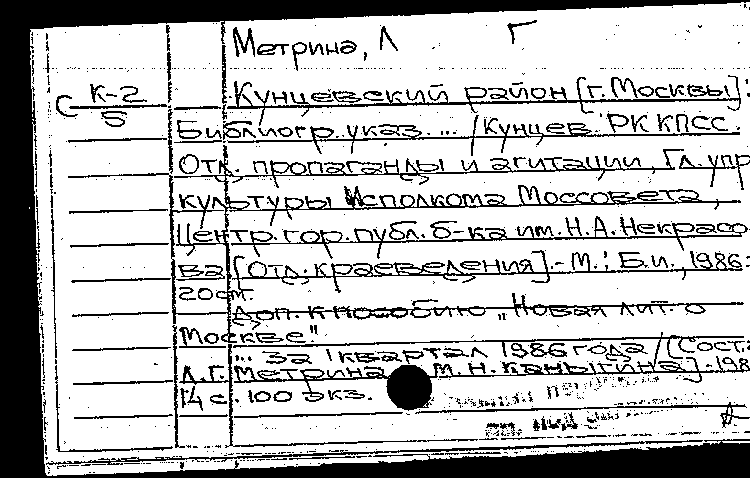 Метрина, Л Г
С К-2/5
Кунцевский район [г. Москвы]:
Библиогр. указ. ... / Кунцев. РК КПСС.
Отд. пропаганды и агитации, Гл. упр
культуры Исполкома Моссовета,
Центр. гор. публ. б-ка им. Н.А. Некрасо-
ва [Отд. краеведения]. - М.: Б.и., 1986-
20см.
Доп. к пособию „Новая лит. о
Москве"
... За I квартал 1986 года / [Сост.
Л.Г. Метрина М.Н. Каныгина]. - 198
14 с. 100 экз.